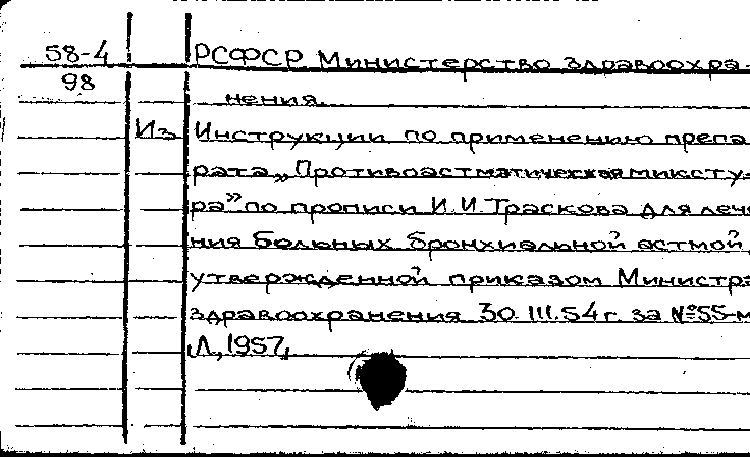 58-4 РСФСР Министерство здравоохра-
98 нения.
Из Инструкции по применению препа
рата „Противоастматическая миксту-
ра” по прописи И.И.Траскова для лече
ния больных бронхиальной астмой,
утвержденной приказом Министра
здравоохранения 30.III.54г. за №55-м
Л., 1957,